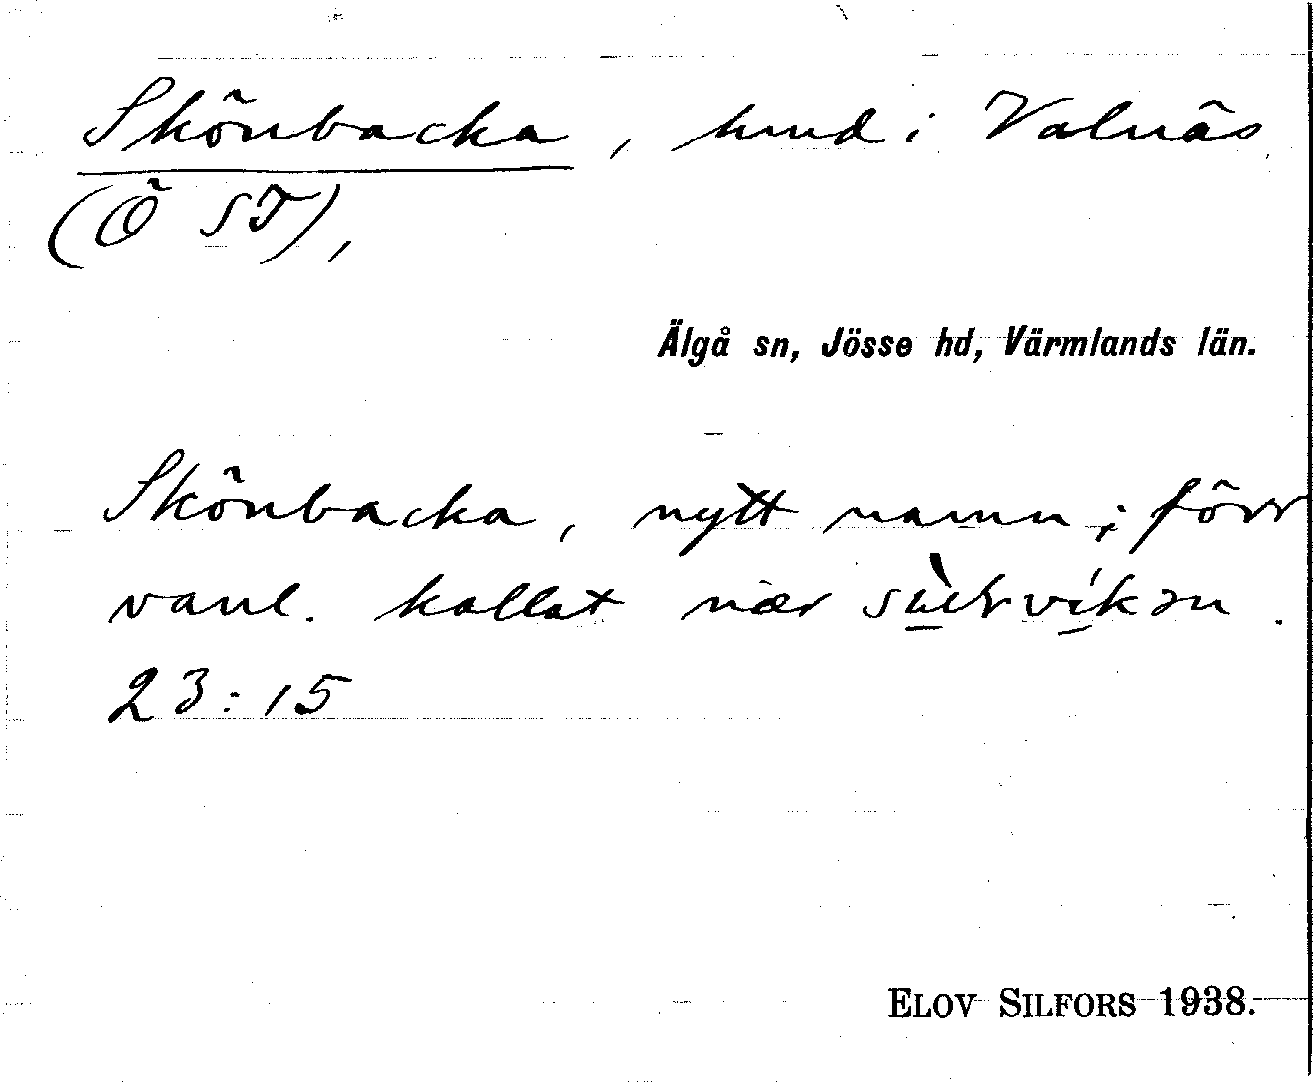 Skönbacka, hmd i Valnäs
(Ö ST),
Älgå sn, Jösse hd, Värmlands län.
Skönbacka, nytt namn; förr
vanl. kallat nær
23:15
ELOV SILFORS 1938.